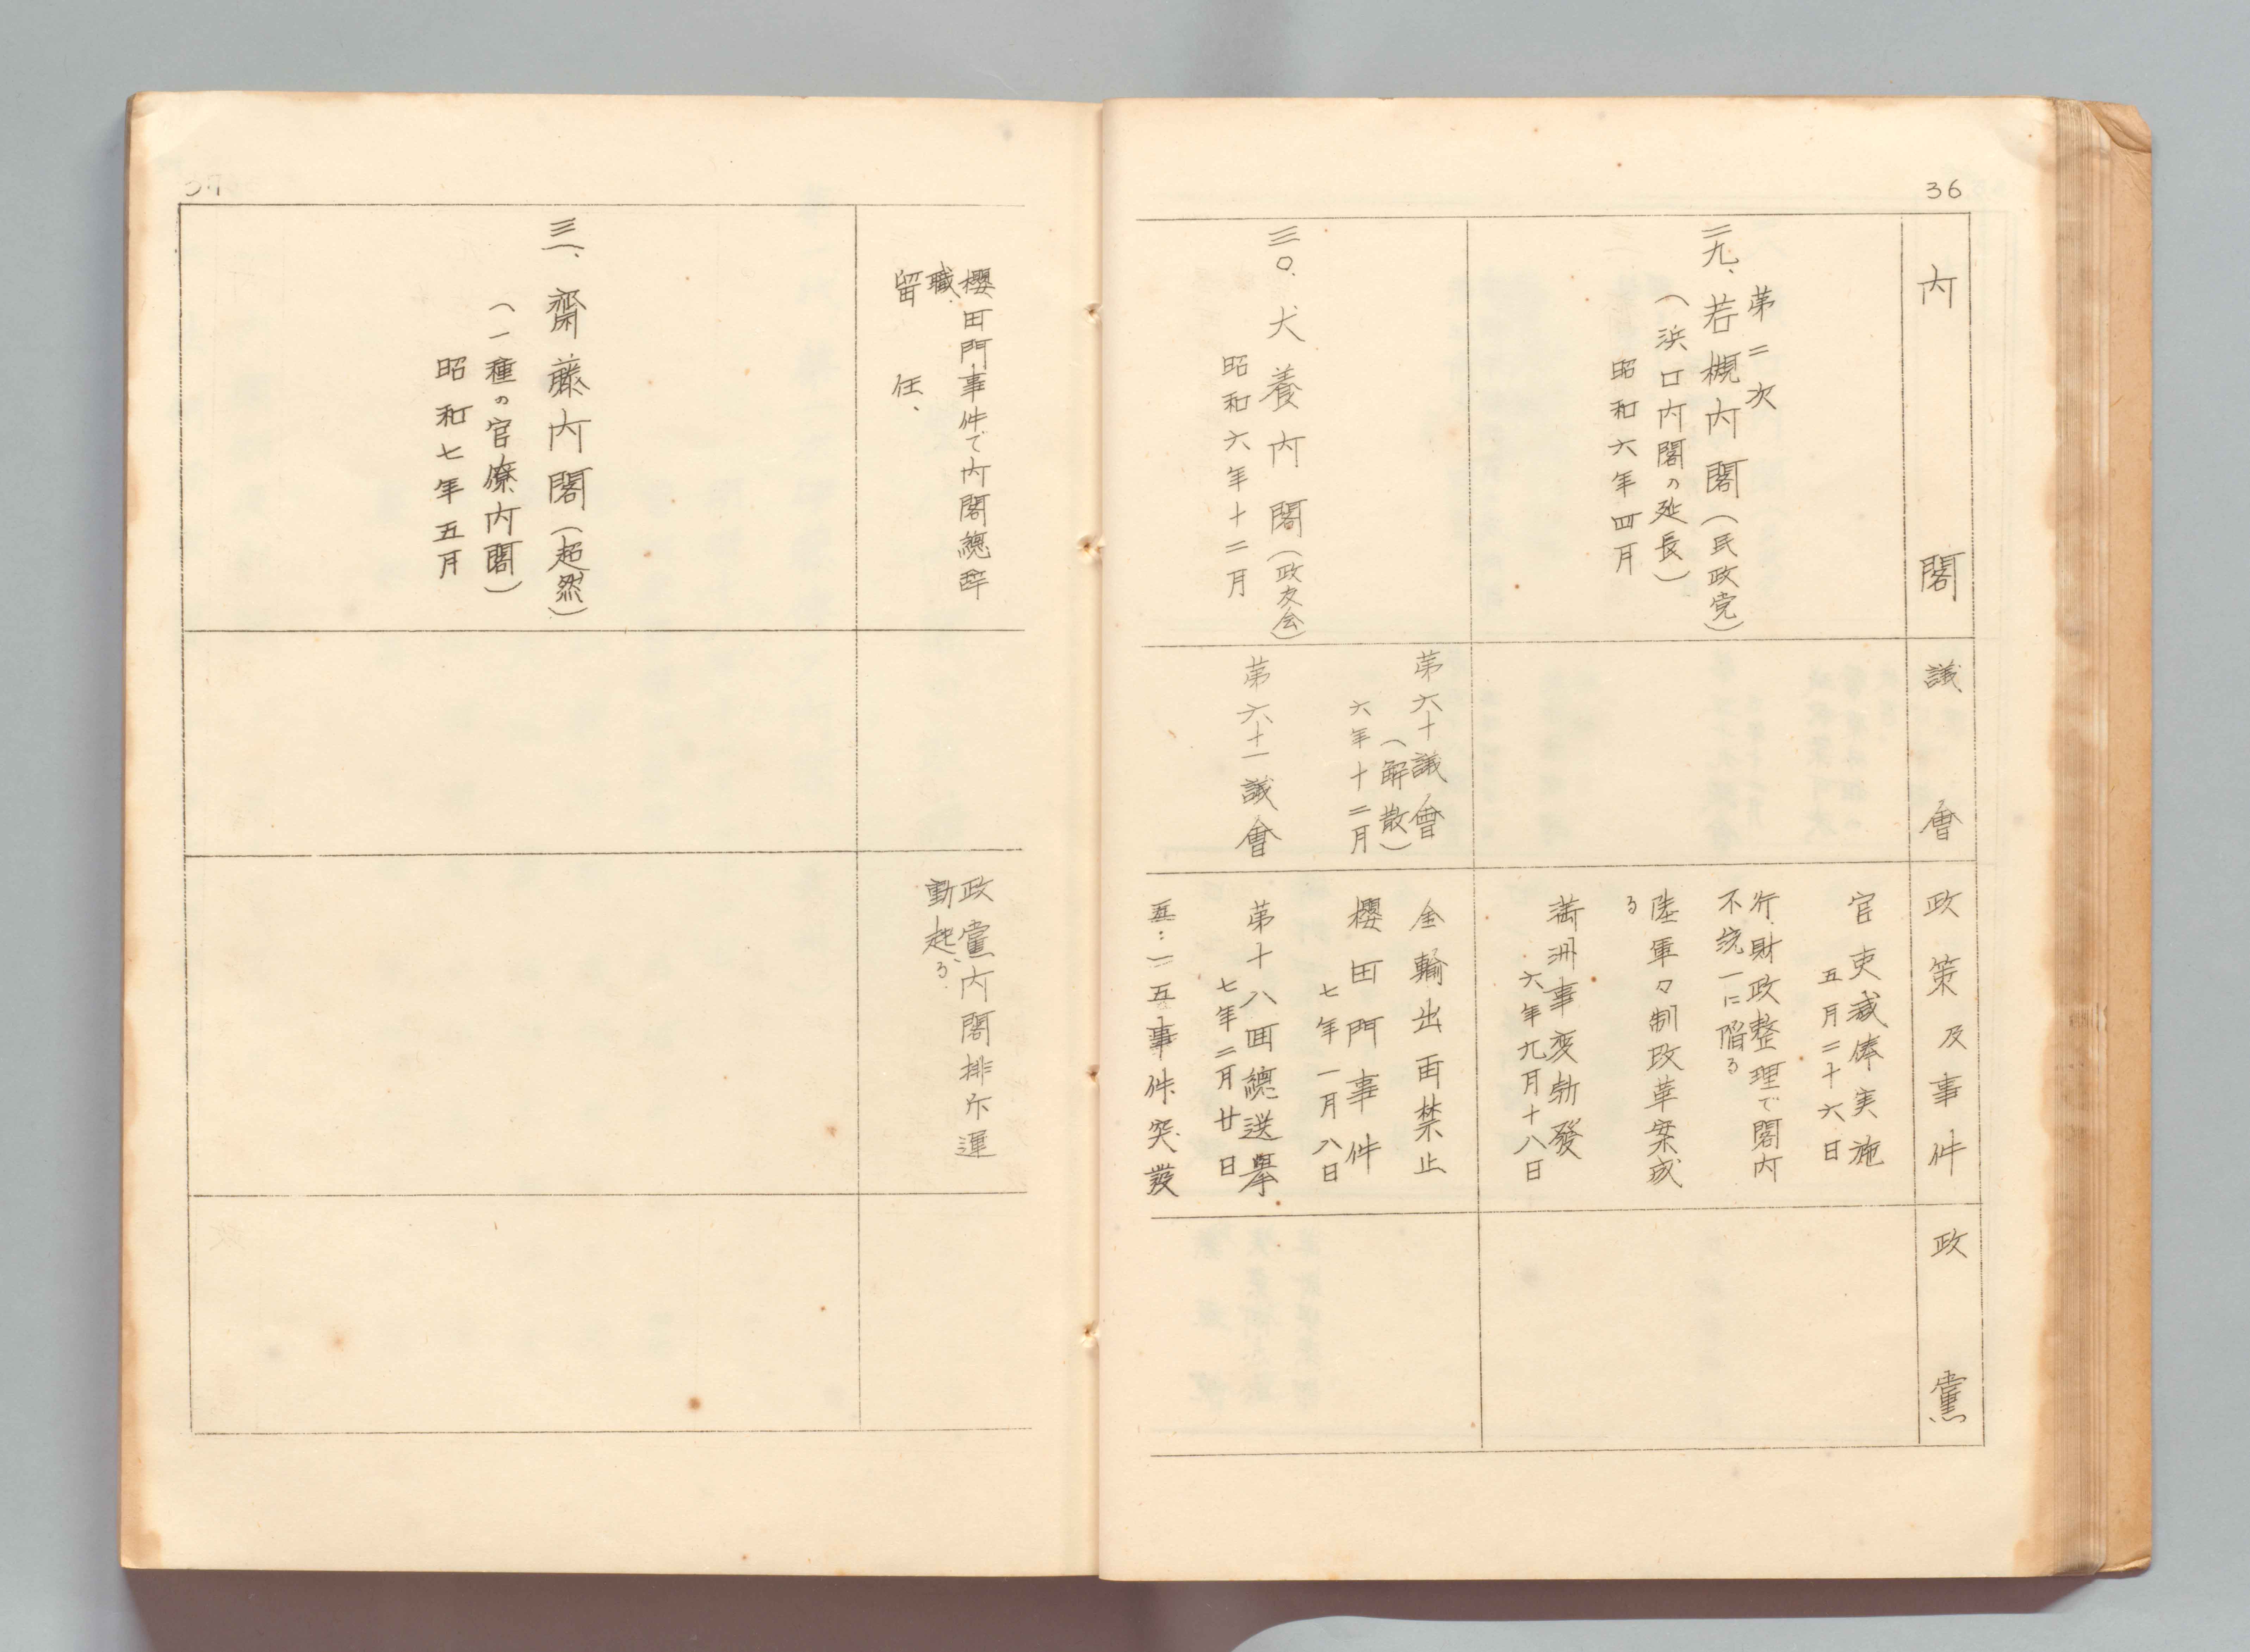 36
内閣
議會
政策及事件
政黨
第二次
二九、若槻内閣(民政党)
(浜口内閣の延長)
昭和六年四月
官吏減俸実施
五月二十六日
行財政整理で閣内
不統一に陥る
陸軍々制改革案成
る
満洲事変勃發
六年九月十八日
三〇.犬養内閣(政友会)
昭和六年十二月
第六十議會
(解散)
六年十二月
第六十一議會
金輸出再禁止
櫻田門事件
七年一月八日
第十八回總送擧
七年二月廿日
五・一五事件突發
櫻田門事件で内閣總辞
職.
留任、
政黨内閣排斥運
動起る.
37
三一、齋藤内閣(超然)
(一種の官僚内閣)
昭和七年五月